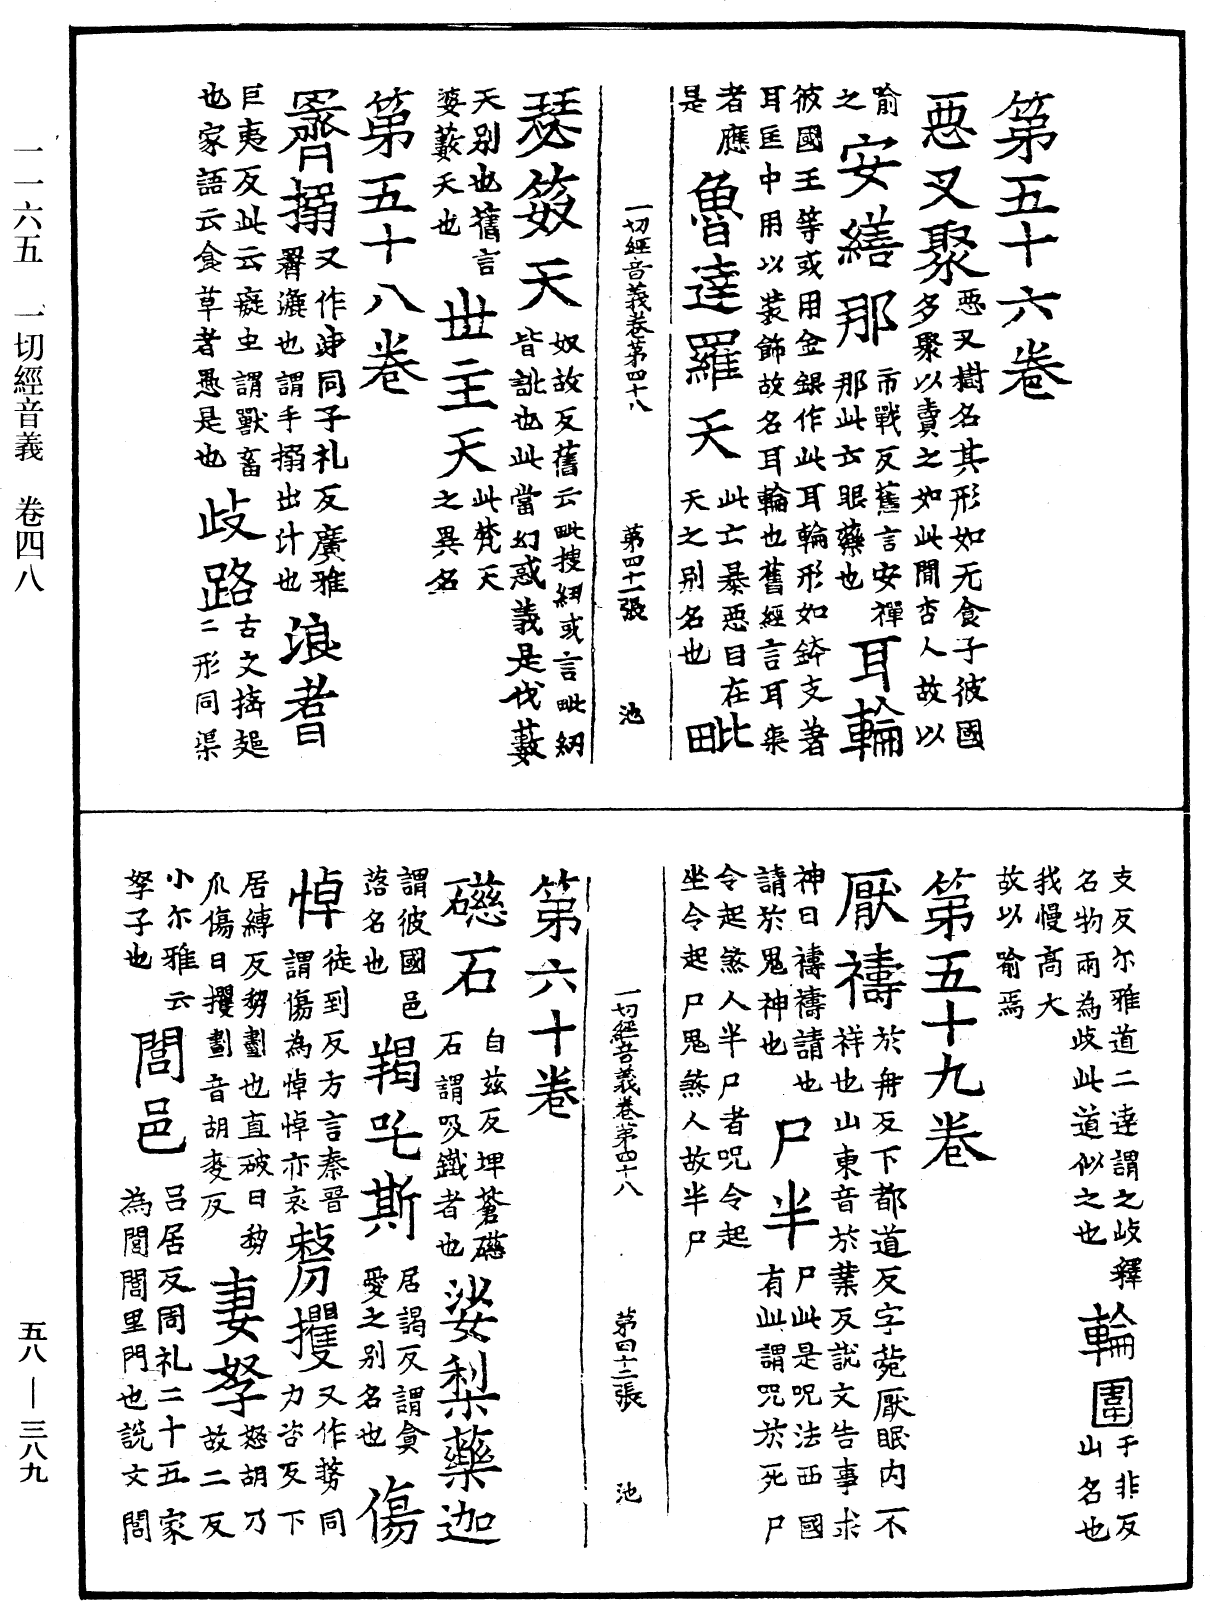 第五十六卷
惡叉聚 惡叉樹名其形如无食子彼國
多聚以賣之如此間杏人故以
喻
之 安繕那 市戰反舊言安禪
那此云眼藥也 耳輪
彼國王等或用金銀作此耳輪形如鉢支著
耳匡中用以裝飾故名耳輪也舊經言耳渠
者應
是 魯達羅天 此云暴惡自在
天之別名也 毗
一切經音義卷第四十八 第四十一張 池
瑟笯天 奴故反舊云毗搜紐或言毗紉
皆訛也此當幻惑義是伐藪
天別也舊言
婆藪天也 世主天 此梵天
之異名
第五十八卷
𦌾搦 又作泲同子礼反廣雅
𦌾漉也謂手搦出汁也 浪耆
巨夷反此云癡虫謂獸畜
也家語云食草者愚是也 歧路 古文𢺵𨙸
二形同渠
支反尔雅道二達謂之歧釋
名物兩為歧此道似之也 輪圍 于非反
山名也
我慢高大
故以喻焉
第五十九卷
厭禱 於舟反下都道反字苑厭眠內不
祥也山東音於葉反說文告事求
神曰禱禱請也
請於鬼神也 尸半 尸此是呪法西國
有此謂呪於死尸
令起煞人半尸者呪令起
坐令起尸鬼煞人故半尸
一切經音義卷第四十八 第四十二張 池
第六十卷
礠石 自茲反埤蒼礠
石謂吸鐵者也 娑梨藥迦
謂彼國邑
落名也 羯吒斯 居謁反謂貪
愛之別名也 傷
悼 徒到反方言秦晉
謂傷為悼悼亦哀 剺攫 又作剺同
力咨反下
居縛反剺劃也直破曰剺
爪傷曰攫劃音胡麦反 妻孥 怒胡乃
故二反
小尔雅云
孥子也 閭邑 呂居反周礼二十五家
為閭閭里門也說文閭
一一六五 一切經音義 卷四八
五八—三八九